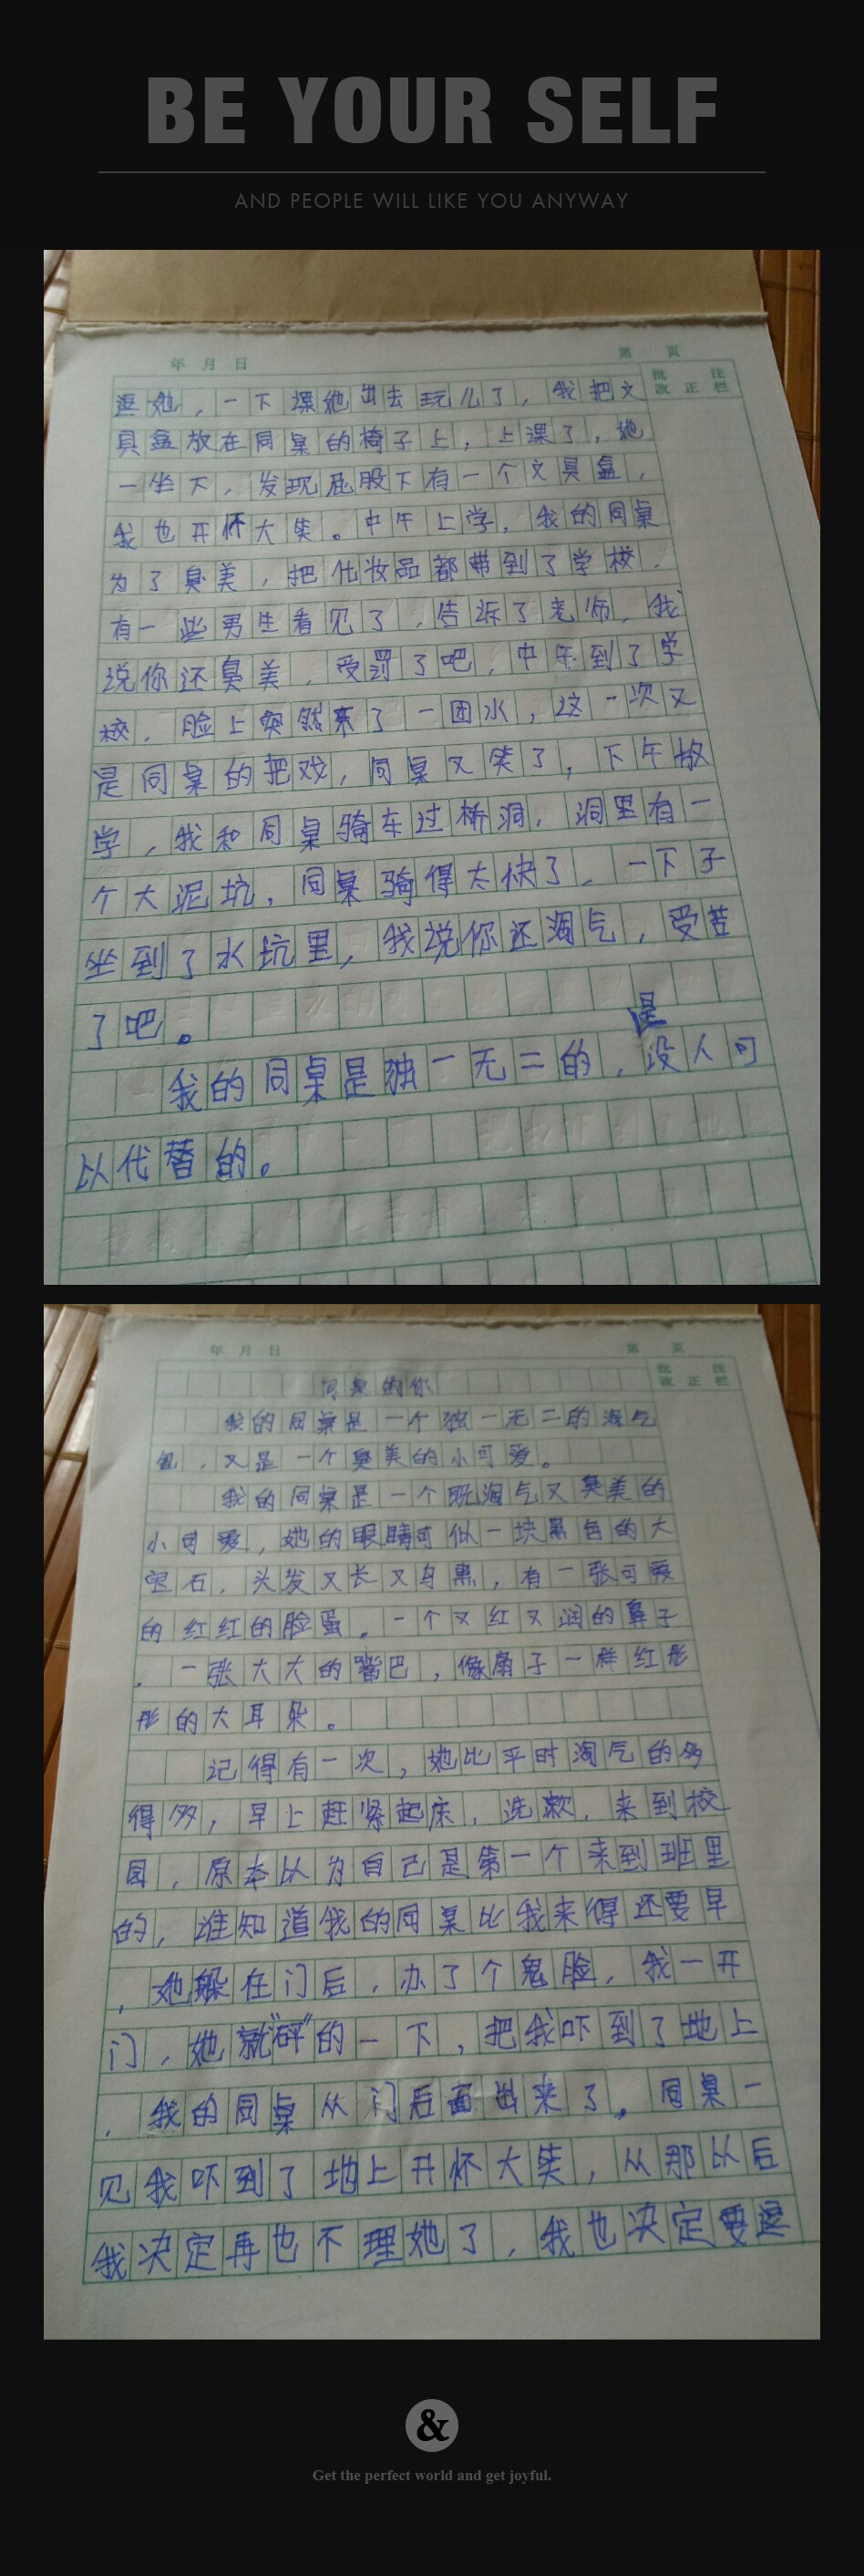 BE YOUR SELF
AND PEOPLE WILL LIKE YOU ANYWAY
年 月 日
第 页
批 注
改 正 栏
逗她，一下课她出去玩儿了，我把文
具盒放在同桌的椅子上，上课了，她
一坐下，发现屁股下有一个文具盒，
我也开怀大笑。中午上学，我的同桌
为了臭美，把化妆品都带到了学校，
有一些男生看见了，告诉了老师，我
说你还臭美，受罚了吧，中午到了学
校，脸上突然来了一团水，这一次又
是同桌的把戏，同桌又笑了，下午放
学，我和同桌骑车过桥洞，洞里有一
个大泥坑，同桌骑得太快了，一下子
坐到了水坑里，我说你还淘气，受苦
了吧。
是
我的同桌是独一无二的，没人可
以代替的。
年 月 日
第 页
批 注
改 正 栏
同桌的你
我的同桌是一个独一无二的淘气
包，又是一个臭美的小可爱。
我的同桌是一个既淘气又臭美的
小可爱，她的眼睛可似一块黑色的大
宝石，头发又长又乌黑，有一张可爱
的红红的脸蛋，一个又红又润的鼻子
，一张大大的嘴巴，像扇子一样红彤
彤的大耳朵。
记得有一次，她比平时淘气的多
得多，早上赶紧起床，洗漱，来到校
园，原本以为自己是第一个来到班里
的，谁知道我的同桌比我来得还要早
，她躲在门后，办了个鬼脸，我一开
门，她就"砰"的一下，把我吓到了地上
，我的同桌从门后面出来了。同桌一
见我吓到了地上开怀大笑，从那以后
我决定再也不理她了，我也决定要逗
&
Get the perfect world and get joyful.